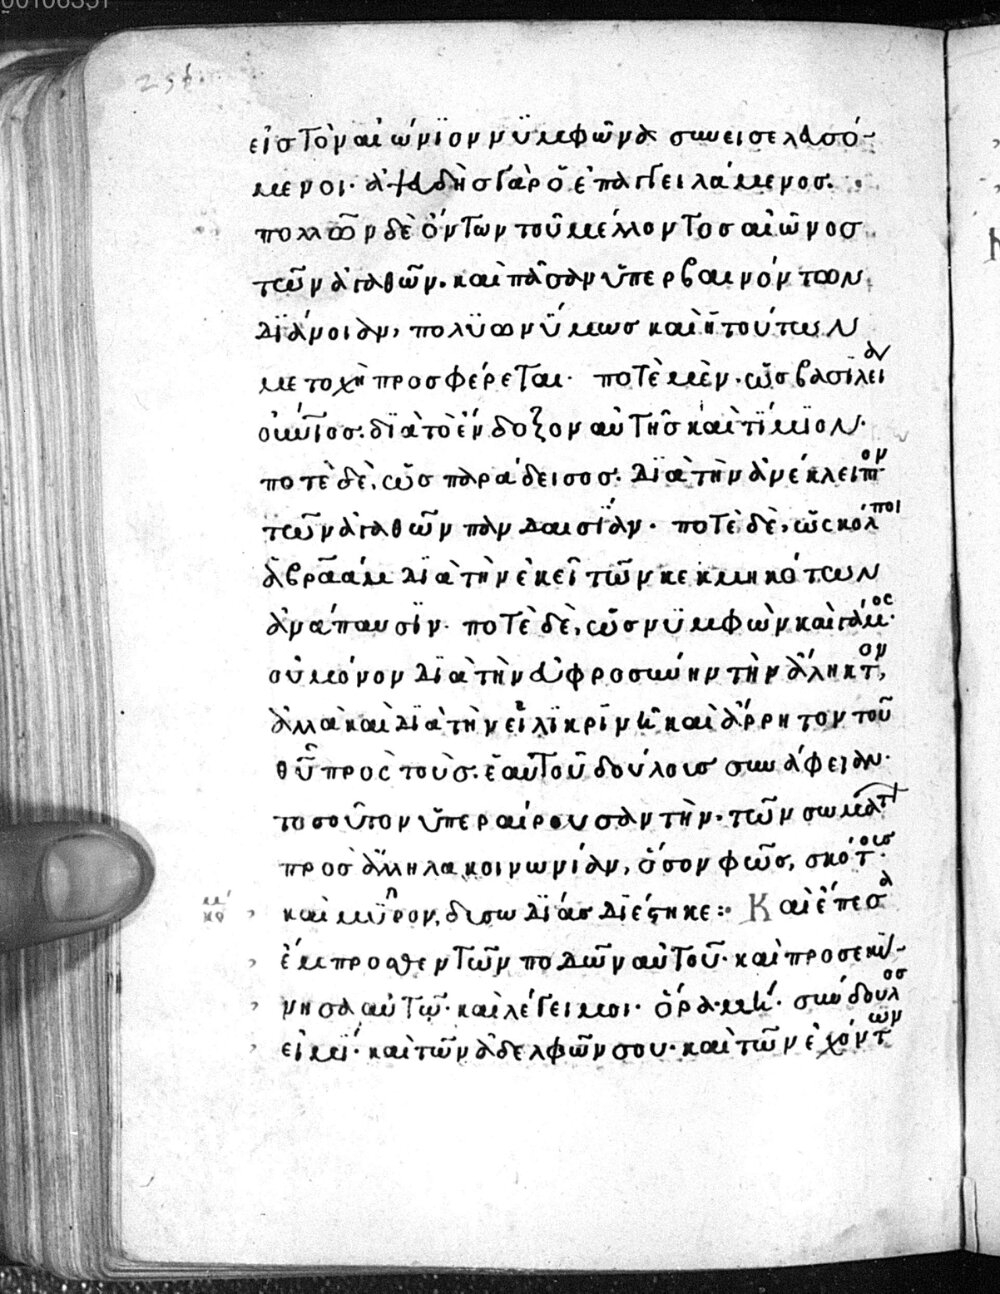 εἰς τὸν αἰώνϊον νϋμφῶνα συνεισελασό-
μενοι· ἀψαδὴς γὰρ ὁ ἐπαγγειλάμενος.
πολλῶν δὲ ὄντων τοῦ μέλλοντος αἰῶνος
τῶν ἀγαθῶν. καὶ πᾶσαν ὑπερβαινόντων
διάνοιαν, πολϋωνΰμως καὶ ἡ τούτων
μετοχὴ προσφέρεται· ποτὲ μὲν. ὡς βασιλεί αν
οὐνιος. διὰ τὸ ἔνδοξον αὐτῆς καὶ τίμιον·
ποτὲ δὲ, ὡς παράδεισος. διὰ τὴν ἀνέκλειπτον
τῶν ἀγαθῶν πανδαισίαν. ποτὲ δὲ, ὡς κόλποι
ἀβραὰμ διὰ τὴν ἐκεῖ τῶν κεκμηκότων
ἀνάπαυσιν· ποτὲ δὲ, ὡς νϋμφὼν καὶ γάμος·
οὐ μόνον διὰ τὴν εὐφροσύνην τὴν ἄληκτον,
ἀλλὰ καὶ διὰ τὴν εἰλϊκρινῆ καὶ ἄρρητον τοῦ
θῦ πρὸς τοὺς ἑαυτοῦ δούλους συνάφειαν·
τοσοῦτον ὑπεραίρουσαν τὴν. τῶν σωμάτ
πρὸς ἄλληλα κοινωνίαν, ὅσον φῶς, σκότους·
καὶ μῦρον, δυσωδίας διέστηκε: Καὶ ἔπεσα
ἔμπροσθεν τῶν ποδῶν αὐτοῦ· καὶ προσεκΰ-
νησα αὐτῷ· καὶ λέγει μοι· ὅρα μή· σύνδουλός
εἰμί· καὶ τῶν ἀδελφῶν σου· καὶ τῶν ἐχόντων